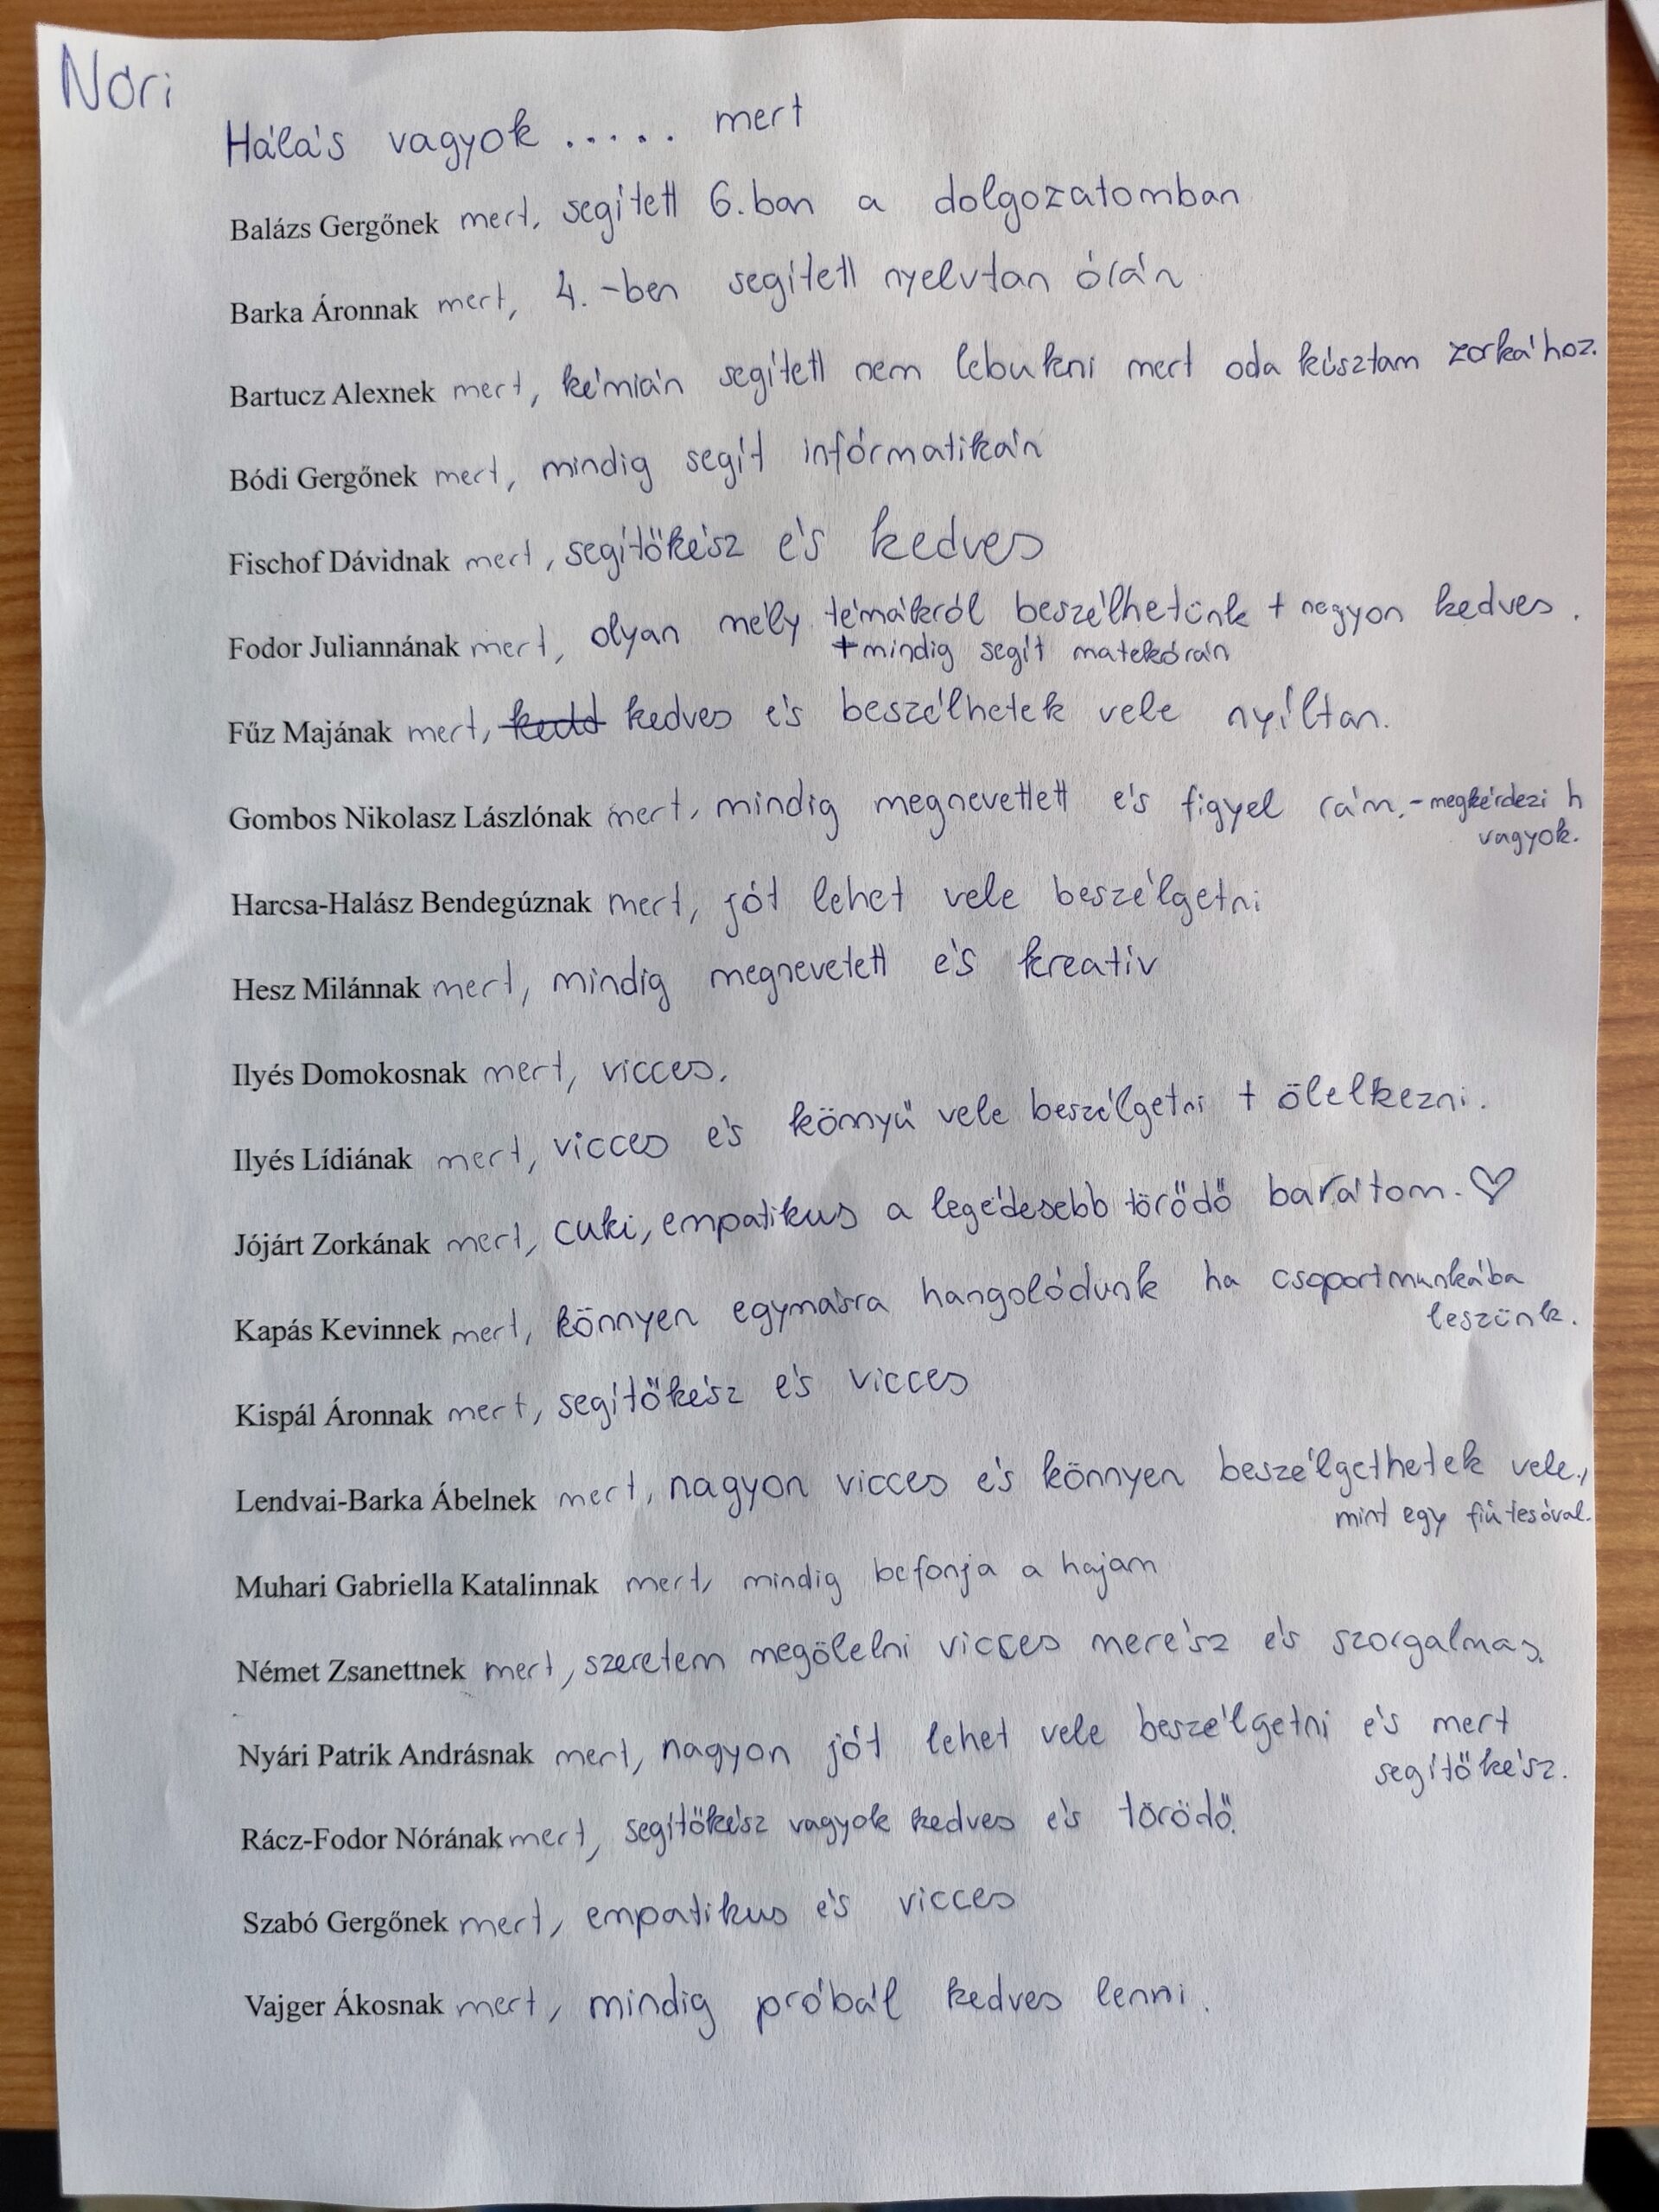 Nóri
Hálás vagyok ..... mert
Balázs Gergőnek mert, segített 6.ban a dolgozatomban
Barka Áronnak mert, 4.-ben segített nyelvtan órán
Bartucz Alexnek mert, kémián segített nem lebukni mert oda kúsztam Zorkához.
Bódi Gergőnek mert, mindig segít infórmatikán
Fischof Dávidnak mert, segítőkész és kedves
Fodor Juliannának mert, olyan mély témákról beszélhetünk + nagyon kedves.
+mindig segít matekórán
Fűz Majának mert, kedd kedves és beszélhetek vele nyíltan.
Gombos Nikolasz Lászlónak mert, mindig megnevettett és figyel rám.-megkérdezi h
vagyok.
Harcsa-Halász Bendegúznak mert, jót lehet vele beszélgetni
Hesz Milánnak mert, mindig megnevetett és kreatív
Ilyés Domokosnak mert, vicces.
Ilyés Lídiának mert, vicces és könnyű vele beszélgetni + ölelkezni.
Jójárt Zorkának mert, cuki, empatikus a legédesebb törődő barátom. ♡
Kapás Kevinnek mert, könnyen egymásra hangolódunk ha csoportmunkába
leszünk.
Kispál Áronnak mert, segítőkész és vicces
Lendvai-Barka Ábelnek mert, nagyon vicces és könnyen beszélgethetek vele,
mint egy fiútesóval.
Muhari Gabriella Katalinnak mert, mindig befonja a hajam
Német Zsanettnek mert, szeretem megölelni vicces merész és szorgalmas.
Nyári Patrik Andrásnak mert, nagyon jót lehet vele beszélgetni és mert
segítőkész.
Rácz-Fodor Nórának mert, segítőkész vagyok kedves és törödő.
Szabó Gergőnek mert, empatikus és vicces
Vajger Ákosnak mert, mindig próbál kedves lenni.